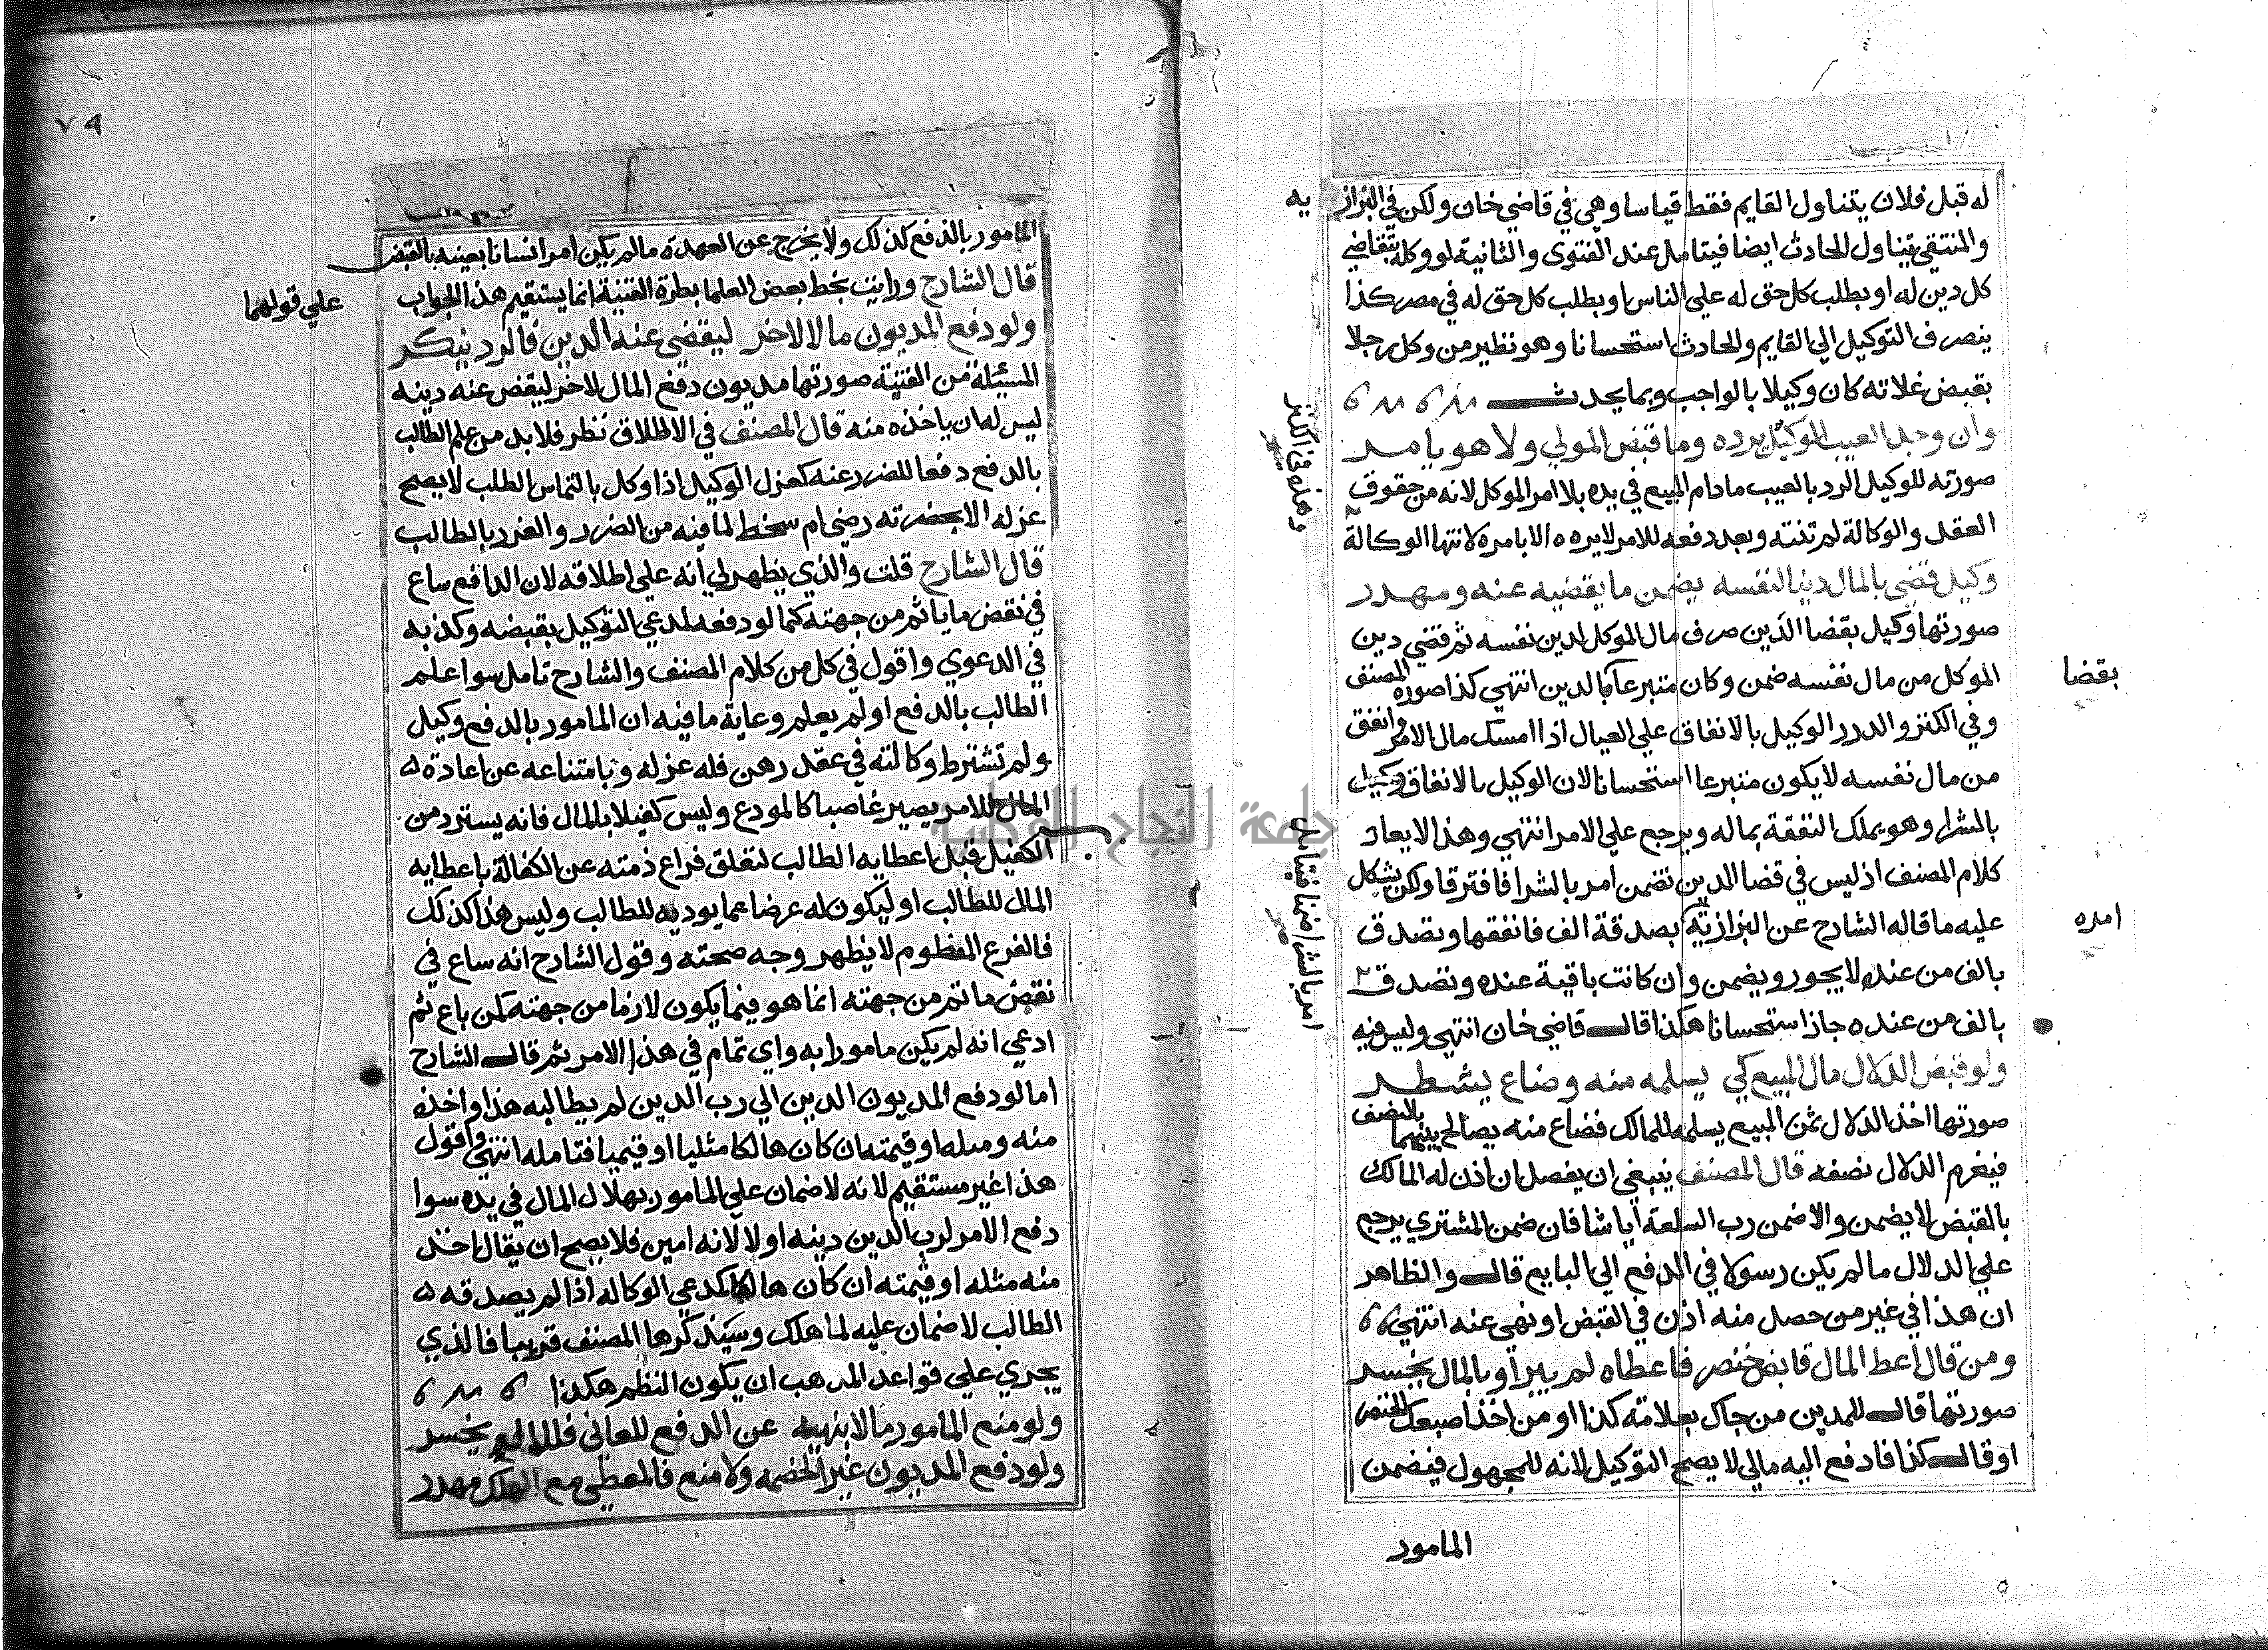 له قبل فلان يتناول القايم فقط قياسا وهي في قاضي خان ولكن في البزاز
يه
والمنتقي يتناول الحادث ايضا فيتامل عند الفتوى والثانية لو وكله بتقاضي
كل دين له او بطلب كل حق له علي الناس او بطلب كل حق له في مصر كذا
ينصرف التوكيل الي القايم والحادث استحسانا وهو نظير من وكل رجلا
بقبض غلاته كان وكيلا بالواجب وبما يحدث
وان وجد العيب الموكيل يرده وما قبض المولي ولا هو يامر
صورته للوكيل الرد بالعيب مادام المبيع في يده بلا امر الموكل لانه من حقوق
العقد والوكالة لم تنته وبعد دفعه للامر لا يرده الا بامره لانتها الوكالة
وكيل قضي بالمال دينا لنفسه يضمن ما يقضيه عنه ومهدر
صورتها وكيل بقضا الدين صرف مال الموكل لدين نفسه ثم قضي دين
الموكل من مال نفسه ضمن وكان متبرعا بالدين انتهي كذا صوره المصنف
بقضا
وفي الكنز والدرر الوكيل بالانفاق علي العيال اذا امسك مال الامر وانفق
من مال نفسه لا يكون متبرعا استحسانا لان الوكيل بالانفاق وكيل
بالشرا وهو يملك النفقة بماله ويرجع علي الامر انتهي وهذا لا يعاد
كلام المصنف اذ ليس في قضا الدين تضمن امر بالشرا فافترقا ولكن يشكل
عليه ما قاله الشارح عن البزازية بصدقة الف فانفقها وتصدق
امره
بالف من عنده لا يجوز ويضمن وان كانت باقية عنده وتصدق
بالف من عنده جاز استحسانا هكذا قال قاضي خان انتهي وليس فيه
امر بالشرا ضمنا فيتامل
ولو قبض الدلال مال المبيع كي يسلمه منه وضاع يشطر
صورتها اخذ الدلال ثمن المبيع يسلمه للمالك فضاع منه يصالح بينهما بالنصف
فيغرم الدلال نصفه قال المصنف ينبغي ان يفصل ان اذن له المالك
بالقبض لا يضمن والا ضمن رب السلعة ايا شا فان ضمن المشتري يرجع
علي الدلال ما لم يكن رسولا في الدفع الي البايع قال والظاهر
ان هذا في غير من حصل منه اذن في القبض او نهي عنه انتهي
ومن قال اعط المال قابض خنصر فاعطاه لم يبرا وبالمال يخسر
صورتها قال للمدين من جاك بعلامة كذا او من اخذ اصبعك الخنصر
او قال كذا فادفع اليه مالي لا يصح التوكيل لانه للمجهول فيضمن
المامور
٧٩
المامور بالدفع كذلك ولا يخرج عن العهدة ما لم يكن امر انسانا بعينه بالقبض
قال الشارح ورايت بخط بعض العلما بطرة القنية انما يستقيم هذا الجواب
علي قولهما
ولو دفع المديون مالا لاخر ليقضي عنه الدين فالرد ينكر
المسيلة من القنية صورتها مديون دفع المال لاخر ليقض عنه دينه
ليس له ان ياخذه منه قال المصنف في الاطلاق نظر فلا بد من علم الطالب
بالدفع دفعا للضرر عنه كعزل الوكيل اذا وكل بالتماس الطلب لا يصح
عزله الا بحضرته رضي ام سخط لما فيه من الضرر والغرر بالطالب
قال الشارح قلت والذي يظهر لي انه علي اطلاقه لان الدافع ساع
في نقض ما ياتم من جهته كما لو دفعه لمدعي التوكيل بقبضه وكذبه
في الدعوي واقول في كل من كلام المصنف والشارح تامل سوا علم
الطالب بالدفع او لم يعلم وغاية ما فيه ان المامور بالدفع وكيل
ولم تشترط وكالته في عقد رهن فله عزله وبامتناعه عن اعادة
المال للامر يصير غاصبا كالمودع وليس كفيلا بالمال فانه يسترد من
الكفيل قبل اعطايه الطالب لتعلق فراغ ذمته عن الكفالة باعطايه
المال للطالب او ليكون له عرضا عما يوديه للطالب وليس هذا كذلك
فالفرع المنظوم لا يظهر وجه صحته وقول الشارح انه ساع في
نقض ما تم من جهته انما هو فيما يكون لازما من جهته كمن باع ثم
ادعي انه لم يكن مامورا به واي تمام في هذا الامر ثم قال الشارح
اما لو دفع المديون الدين الي رب الدين لم يطالبه هذا واخذه
منه ومثله او قيمته ان كان هالكا مثليا او قيميا فتامله انتهي واقول
هذا غير مستقيم لانه لا ضمان علي المامور بهلاك المال في يده سوا
دفع الامر لرب الدين دينه اولا لانه امين فلا يصح ان يقال اخذ
منه مثله او قيمته ان كان هالكا كمدعي الوكالة اذا لم يصدقه
الطالب لا ضمان عليه لما هلك وسيذكرها المصنف قريبا فالذي
يجري علي قواعد المذهب ان يكون النظم هكذا
ولو منع المامور مالا ينهيه عن الدفع للعاني يخسر
ولو دفع المديون غير الخصمه ولا منع فالمعطي مع الهلك مهدر